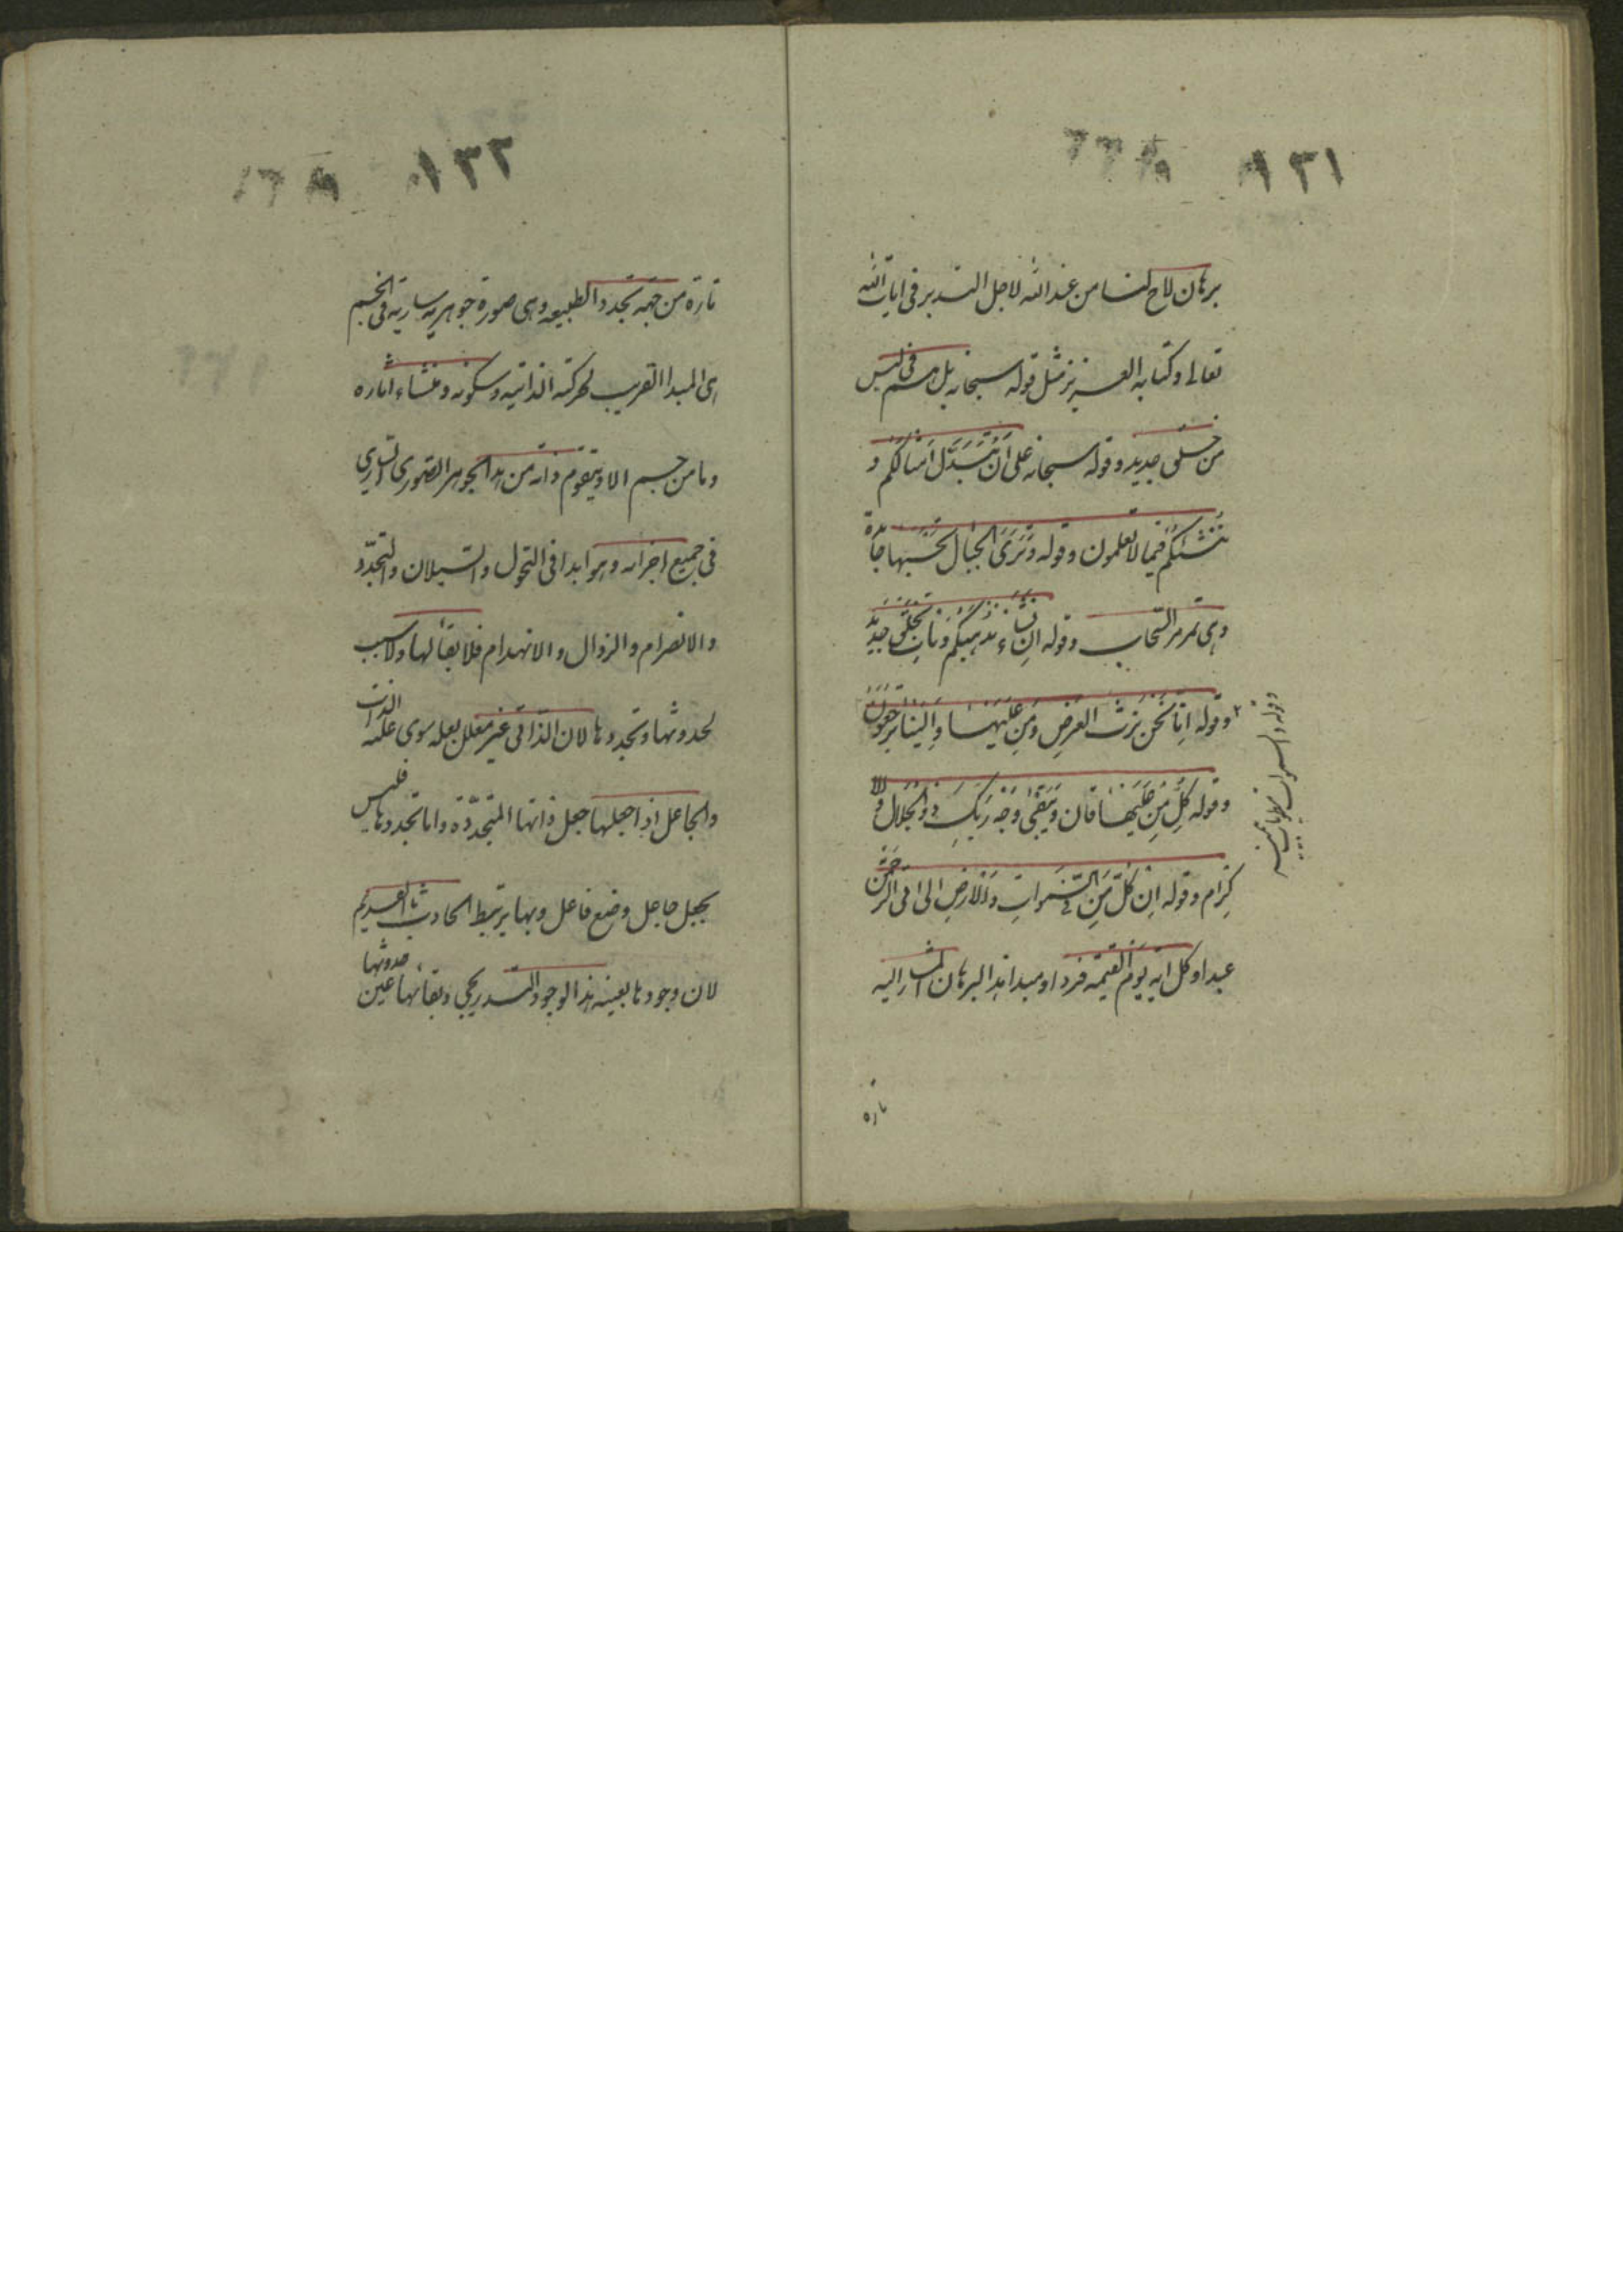 ١٣١
برهان لاح لنا من عند الله لاجل التدبر فی ایات الله
تعالی و کتابه العزیز مثل قوله سبحانه بل هم فی لبس
من خلق جدید و قوله سبحانه علی ان نبدل امثالکم و
ننشئکم فیما لا تعلمون و قوله و تری الجبال تحسبها جامدة
و هی تمر مر السحاب و قوله ان یشاء یذهبکم و یات بخلق جدید
و قوله انا نحن نرث الارض و من علیها و الینا یرجعون
و قوله کل من علیها فان و یبقی وجه ربک ذو الجلال و الا
کرام و قوله ان کل من فی السموات و الارض الی اتی الرحمن
عبدا و کل اتیه یوم القیمة فردا و مبدا هذا البرهان المشار الیه
و قوله و السموات مطویات بیمینه
تاره
١٣٢
تارة من جهة تجدد الطبیعه و هی صورة جوهریه ساریه فی الجسم
هی المبدا القریب لحرکته الذاتیه و سکونه و منشاء اثاره
و ما من جسم الا و یتقوم ذاته من هذا الجوهر الصوری الساری
فی جمیع اجزائه و هو ابدا فی التحول و السیلان و التجدد
و الانصرام و الزوال و الانهدام فلا بقا لها و لا سبب
لحدوثها و تجددها لان الذاتی غیر معلل بعله سوی عله الذات
و الجاعل اذا جعلها جعل ذاتها المتجددة و اما تجددها فلیس
بجعل جاعل و صنع فاعل و بها یرتبط الحادث بالقدیم
لان وجودها بعینه هذا الوجود التدریجی و بقائها عین حدوثها